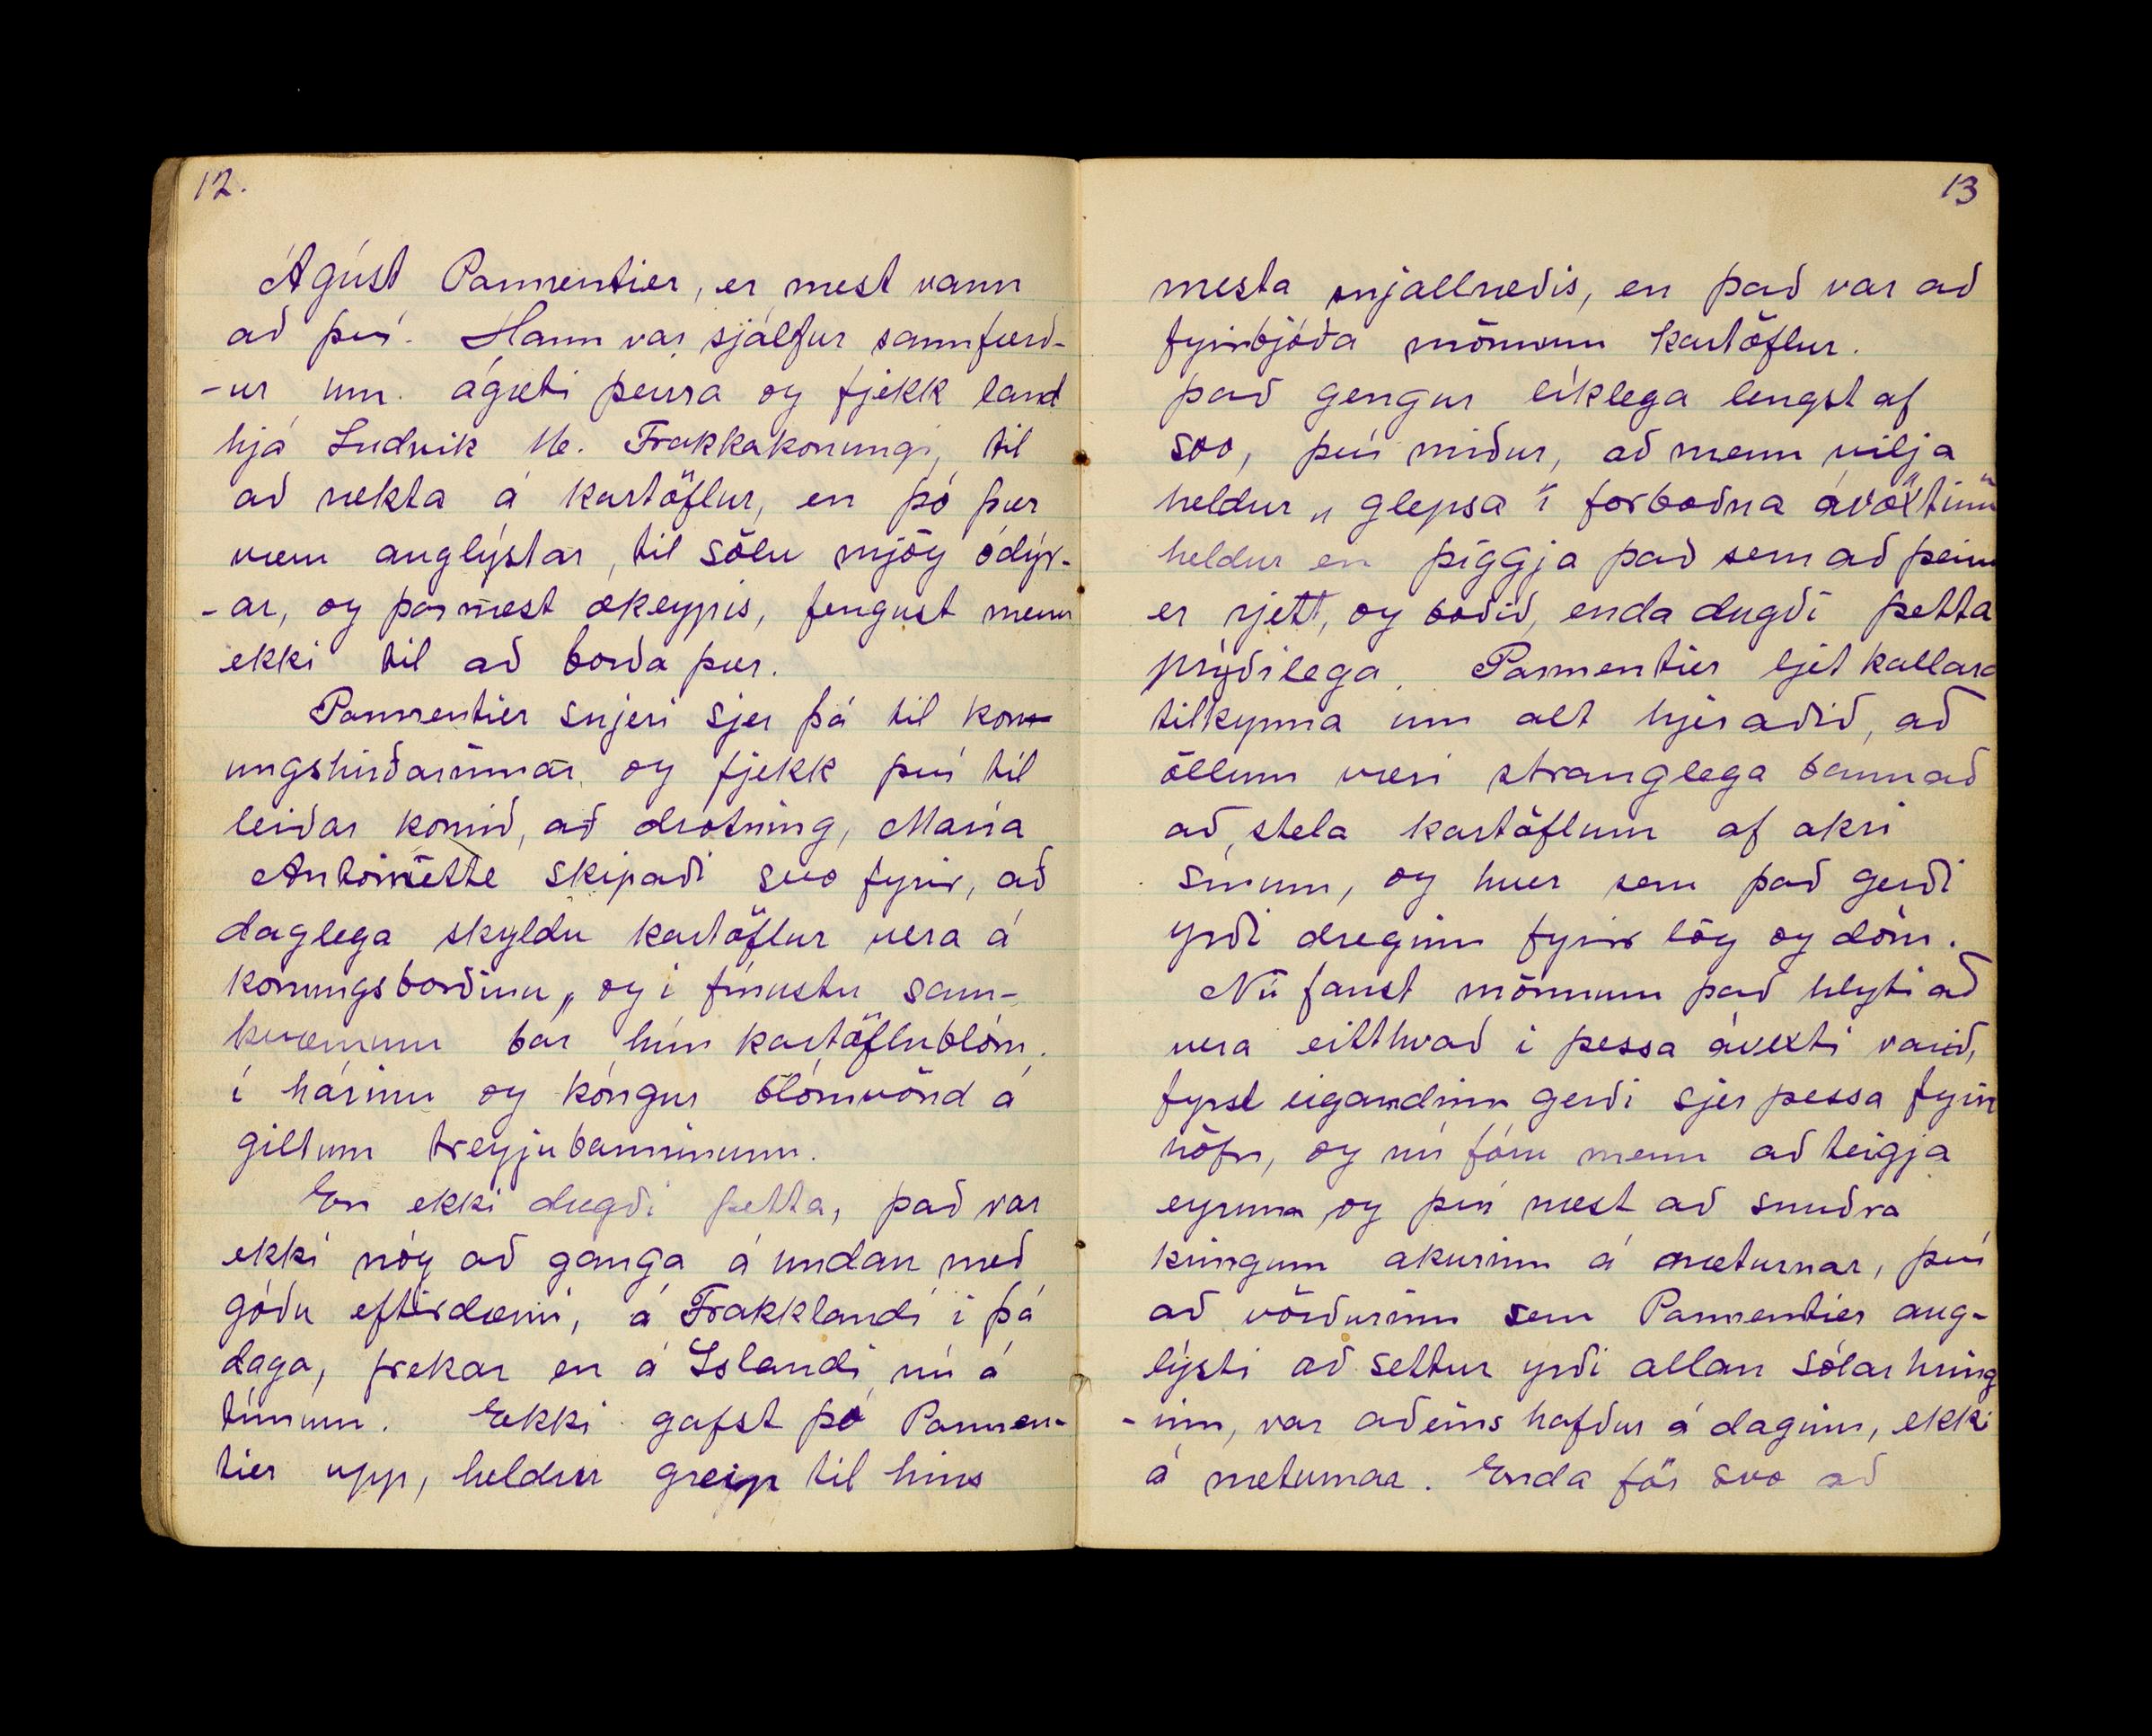 12.
Ágúst Parmentier, er mest vann
að því. Hann var sjálfur sannfærð-
-ur um ágæti þeirra og fjekk land
hjá Ludvik 16. Frakkakonungi, til
að rækta á kartöflur, en þó þær
væru auglýstar, til sölu mjög ódýr-
-ar, og þarnæst ókeypis, fengust menn
ekki til að borða þær.
Parmentier snjeri sjer þá til kon-
ungshirðarinnar og fjekk því til
leiðar komið, að drotning, María
Antoinette skipaði svo fyrir, að
daglega skyldu kartöflur vera á
konungsborðinu, og í fínustu sam-
kvæmum bar hún kartöflublóm
í hárinu og kóngur blómvönd á
giltum treyjubarminum.
En ekki dugði þetta, það var
ekki nóg að ganga á undan með
góðu eftirdæmi, á Frakklandi í þá
daga, frekar en á Íslandi nú á
tímum. Ekki gafst þó Parmen-
tier upp, heldur greip til hins
13
mesta snjallræðis, en það var að
fyrirbjóða mönnum kartöflur.
það gengur líklega lengst af
svo, því miður, að menn vilja
heldur „glepsa í forboðna ávöxtinn"
heldur en þiggja það sem að þeim
er rjett, og boðið, enda dugði þetta
prýðilega. Parmentier ljet kallara
tilkynna um alt hjeraðið, að
öllum væri stranglega bannað
að stela kartöflum af akri
sínum, og hver sem það gerði
yrði dreginn fyrir lög og dóm.
Nú fanst mönnum það hlyti að
vera eitthvað í þessa ávexti varið,
fyrst eigandinn gerði sjer þessa fyrir
höfn, og nú fóru menn að teigja
eyruna og því næst að snuðra
kringum akurinn á næturnar, því
að vörðurinn sem Parmentier aug-
lýsti að settur yrði allan sólarhring
-inn, var aðeins hafður á daginn, ekki
á næturnar. Enda fór svo að